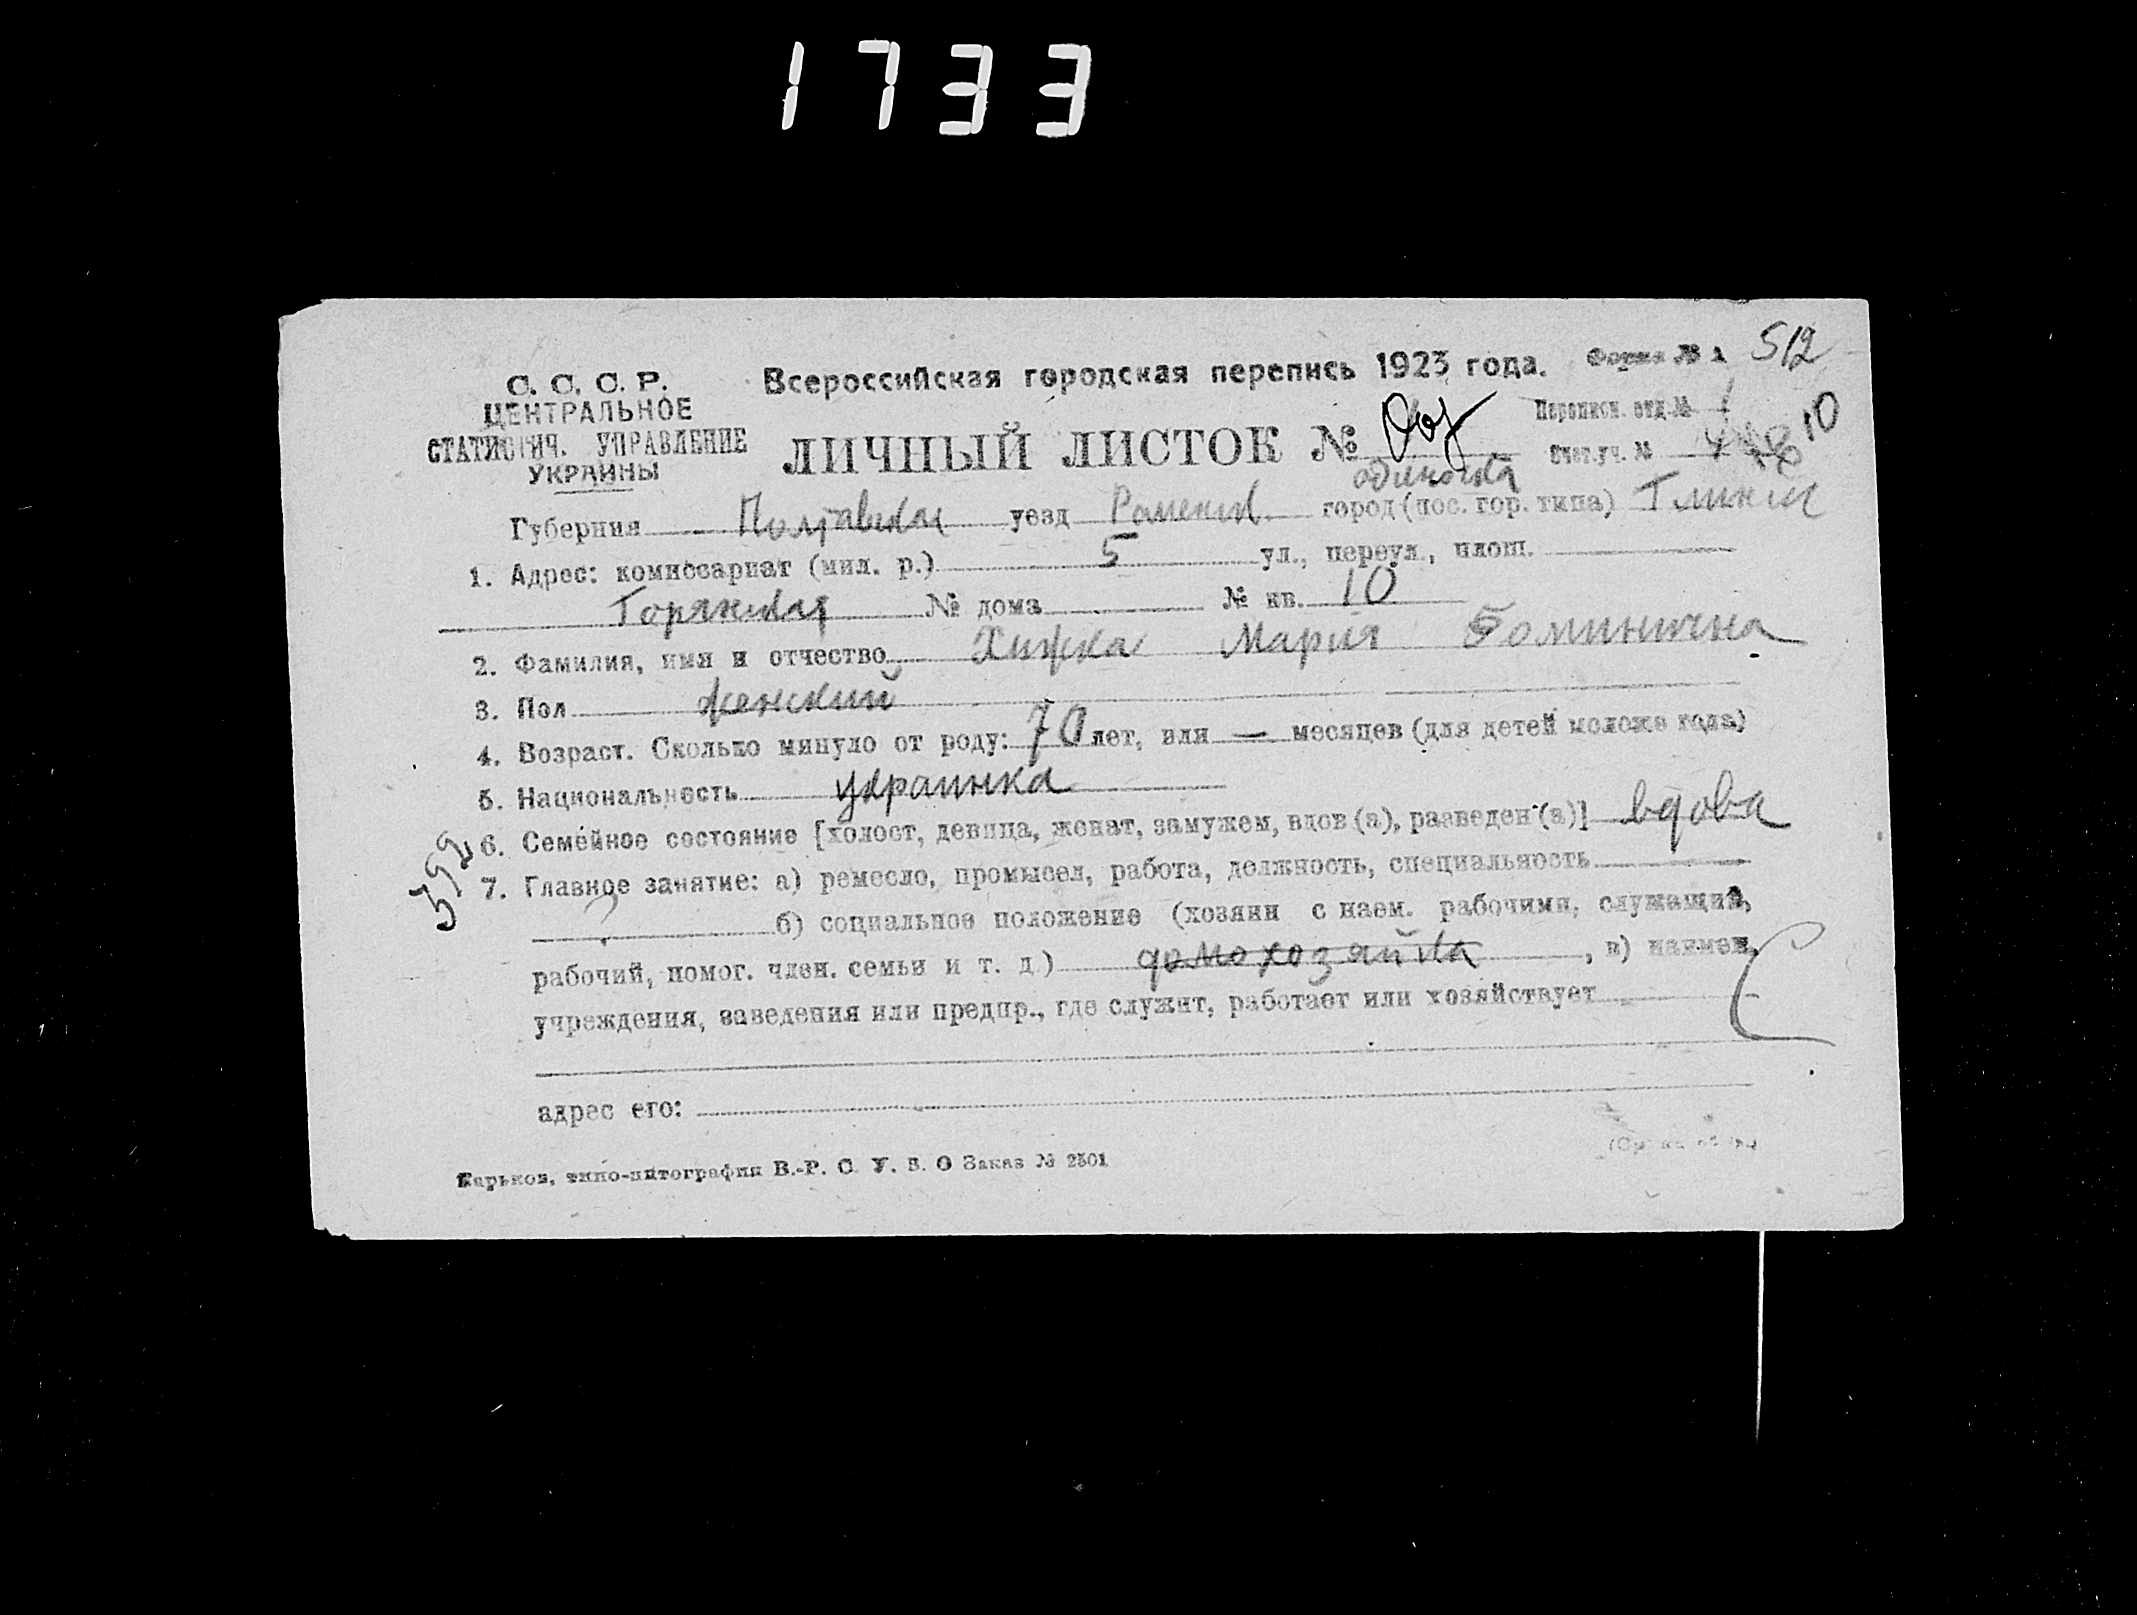 1733
С. С. С. Р.
ЦЕНТРАЛЬНОЕ
СТАТИСТИЧ. УПРАВЛЕНИЕ
УКРАИНЫ
Всероссийская городская перепись 1923 года.
Форма № 1 512
Переписн. отд. № 1
ЛИЧНЫЙ ЛИСТОК №
Счет. уч. № 4 10
одиночка
Губерния Полтавская уезд Роменск. город (пос. гор. типа) Глинск
1. Адрес: комиссариат (мил. р.) 5 ул., переул., площ.
№ дома № кв. 10
2. Фамилия, имя и отчество Хижка Мария Фоминична
3. Пол женский
4. Возраст. Сколько минуло от роду: 70 лет, или — месяцев (для детей моложе года)
5. Национальность украинка
6. Семейное состояние [холост, девица, женат, замужем, вдов (а), разведен (а)] вдова
592
7. Главное занятие: а) ремесло, промысел, работа, должность, специальность
б) социальное положение (хозяин с наем. рабочими, служащий,
рабочий, помог. член. семьи и т. д.) домохозяйка, в) наимен.
учреждения, заведения или предпр., где служит, работает или хозяйствует
адрес его:
Харьков, типо-литография В.-Р. С. У. В. О Заказ № 2501